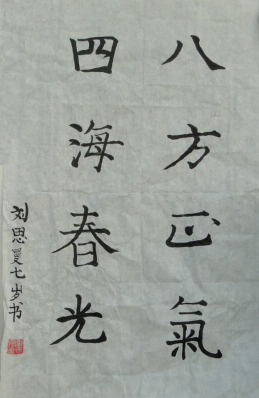 八方正氣
四海春光
刘思旻七岁书